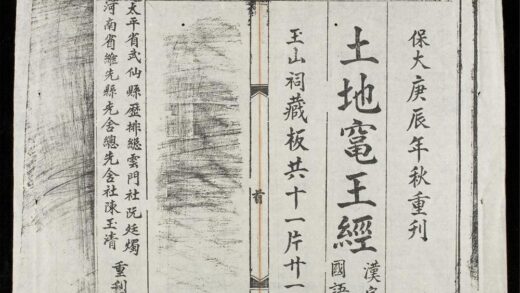 保大庚辰年秋重刊
土地竃王經
漢字
國語
玉山祠藏板共十一片廿一
太平省武仙縣歷排總雲門社阮廷燭
河南省維先縣先舍總先舍社陳玉清
重刊